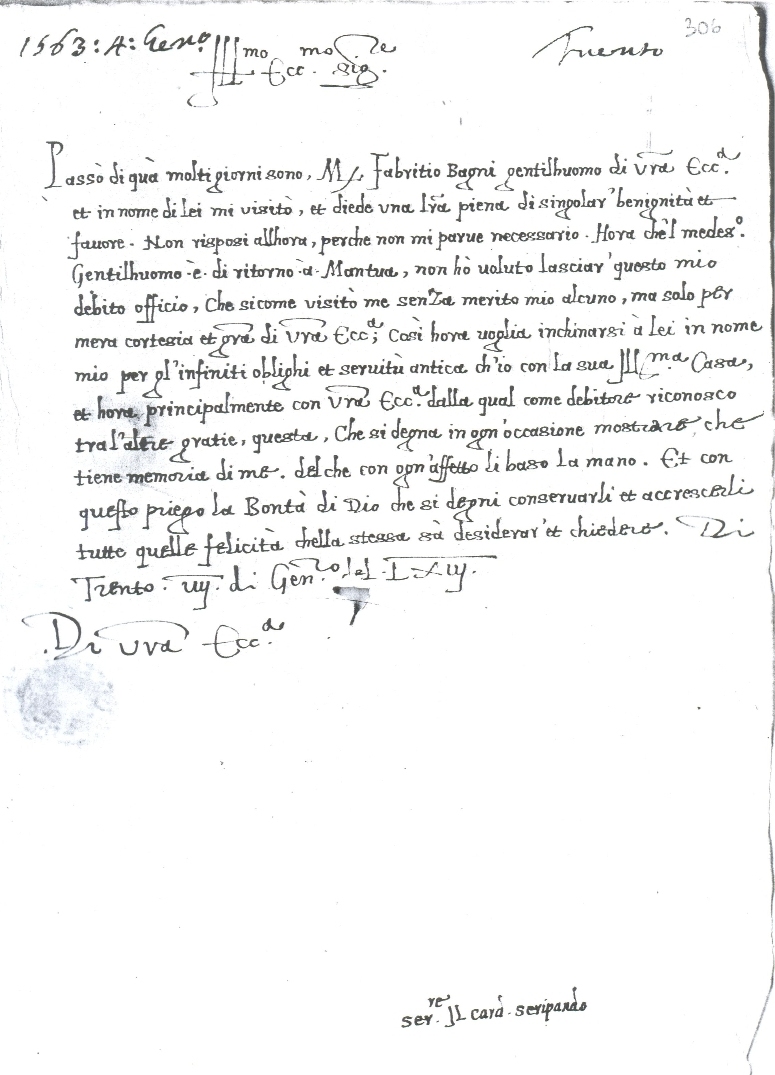 306
1563: 4: Gen.º Trento
Ill.mo Ecc.mo Sig.re
Passò di quà molti giorni sono, M.s Fabritio Bagni gentilhuomo di vra Ecc.a
et in nome di lei mi visitò, et diede vna lra piena di singolar' benignità et
fauore. Non risposi allhora, perche non mi parue necessario. Hora che'l medes.º
Gentilhuomo è di ritorno à Mantua, non hò uoluto lasciar' questo mio
debito officio, Che sicome visitò me senza merito mio alcuno, ma solo per
mera cortesia et gra di vra Ecc.a; Così hora uoglia inchinarsi à lei in nome
mio per gl'infiniti oblighi et seruitù antica ch'io con la sua Ill.ma Casa,
et hora principalmente con vra Ecc.a dalla qual come debitore riconosco
tra l'altre gratie, questa, Che si degna in ogn'occasione mostrare che
tiene memoria di me. del che con ogn'affetto li baso la mano. Et con
questo priego la Bontà di Dio che si degni conseruarli et accrescerli
tutte quelle felicità chella stessa sà desiderar' et chiedere. Di
Trento. iiij. di Gen.ro del LXiij.
Di vra Ecc.a
ser.re Il card. seripando